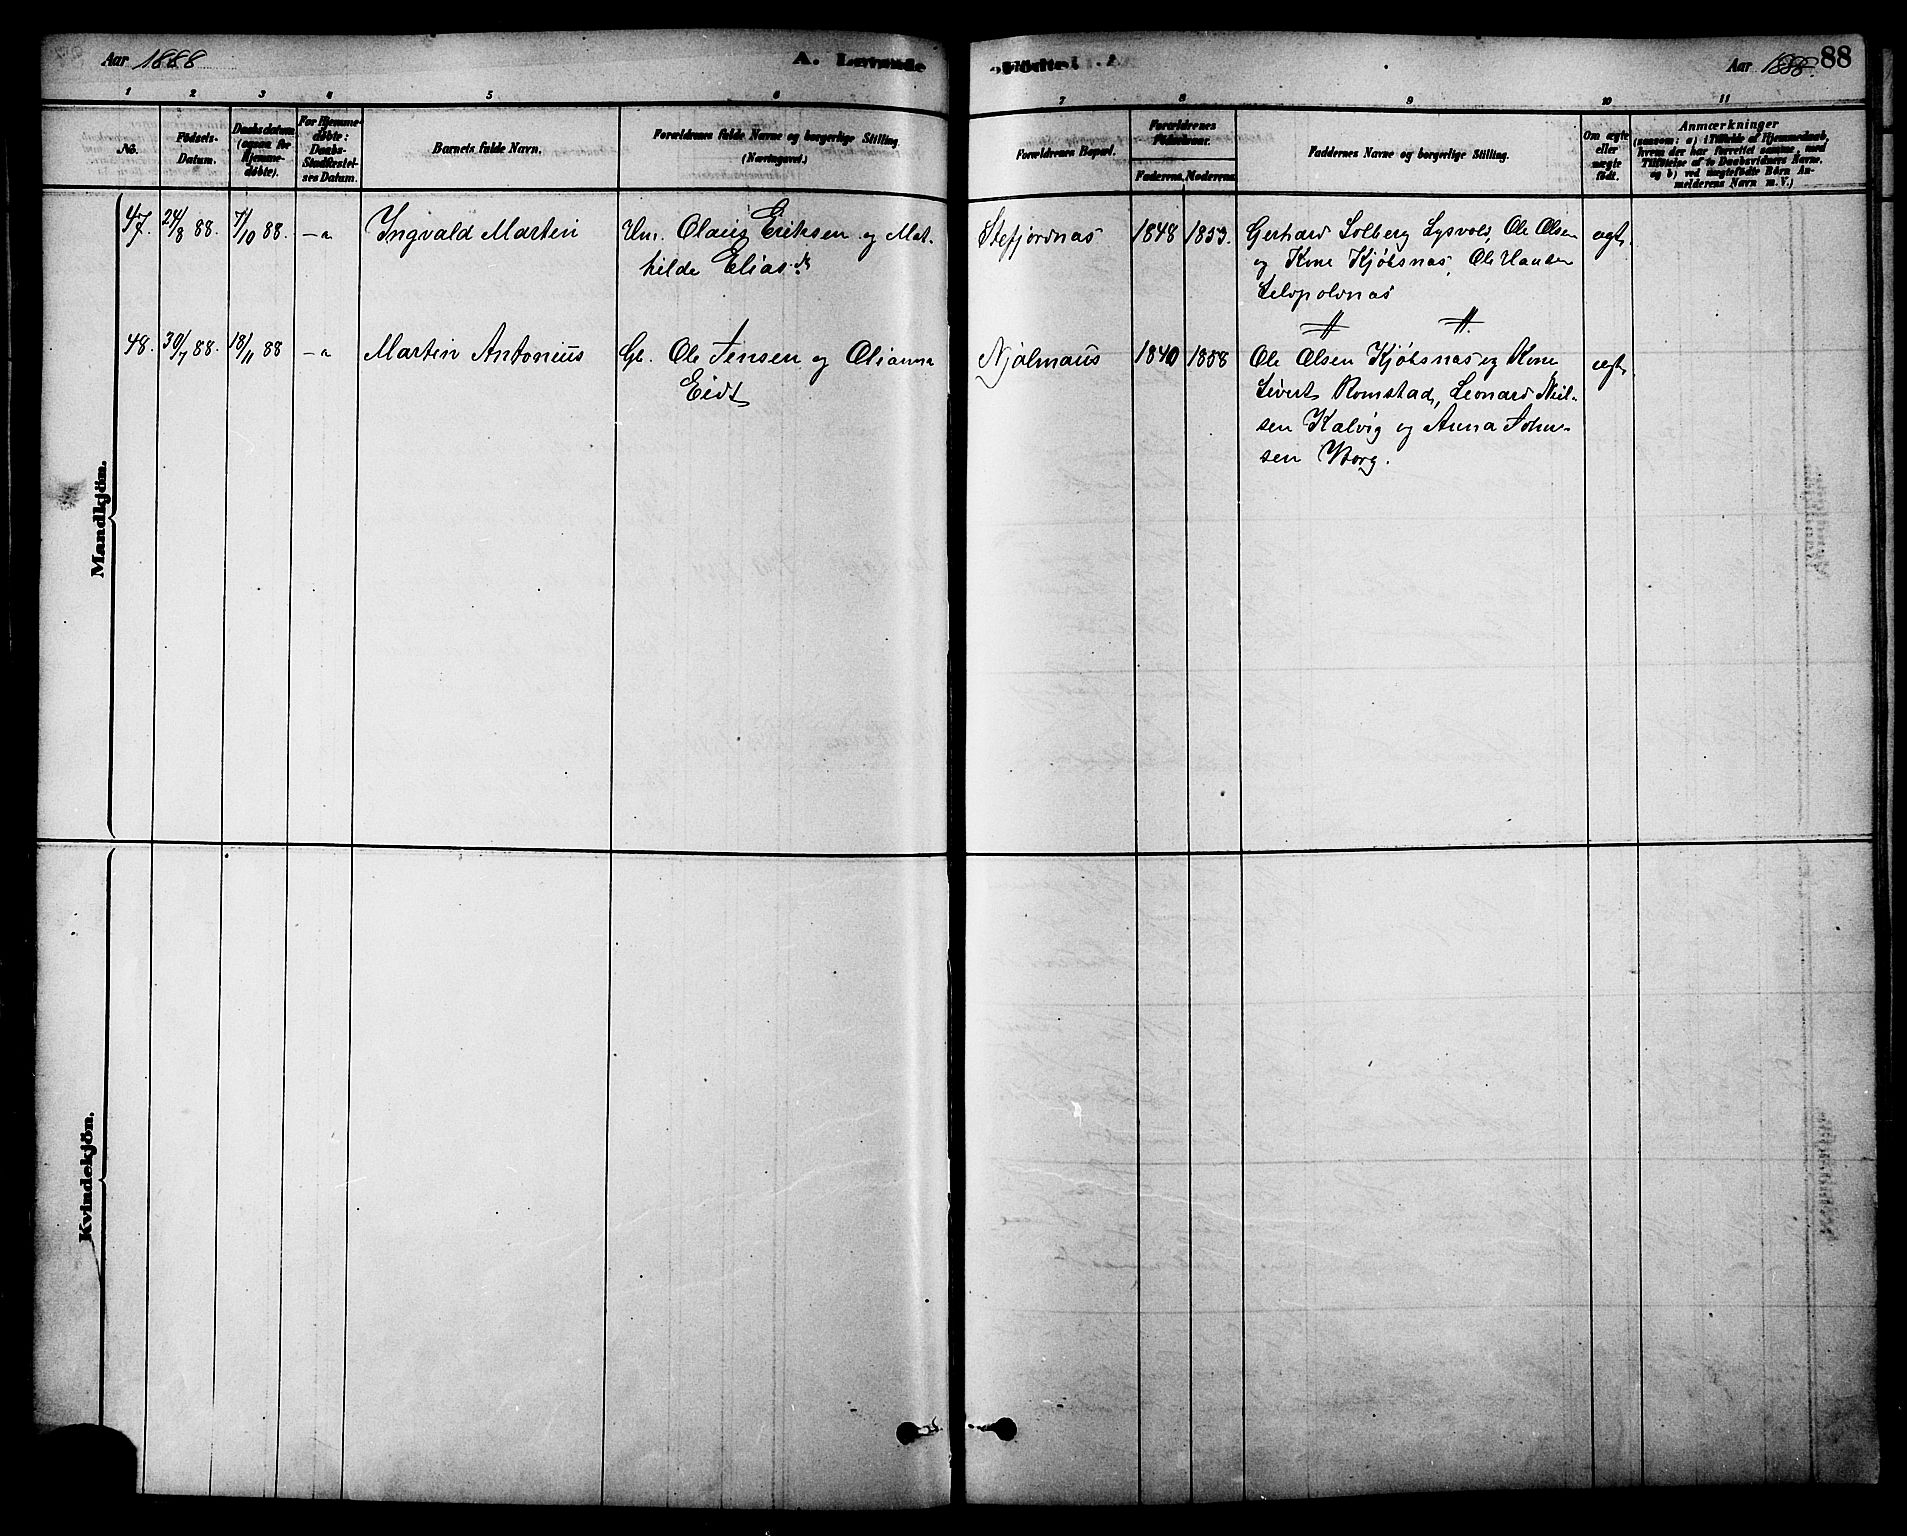 Aar 1888
A. Levende
Fødte.
Aar 1888.
88
1 2 3 4 5 6 7 8 9 10 11
No.
Födsels-
Datum.
Daabsdatum
(ogsaa for
Hjemme-
døbte).
For Hjemme-
døbte:
Daabs-
Stadfæstel-
ses Datum.
Barnets fulde Navn.
Forældrenes fulde Navne og borgerlige Stilling
(Næringsvei.)
Forældrenes Bopæl.
Forældrenes
Fødselsaar.
Faderens. Moderens.
Faddernes Navne og borgerlige Stilling.
Om ægte
eller
uægte
født.
Anmærkninger
(saasom: a) i Tilfælde af Hjemmedaab,
hvem der har forrettet samme, med
Tilføielse af to Daabsvidners Navne.
og b) ved uægtefødte Börn An-
melderens Navn m. V.)
Mandkjön.
47. 24/8 88. 7/10 88. – " Ingvald Martin Um. Olaus Eriksen og Mat- Stefjordnas 1848 1853. Gerhard Solberg Lysvold, Ole Olsen ægte
hilde Elias.dr. og Kone Kjøbsnas, Ole Hansen
Leopoldnas
48. 30/7 88. 18/11 88 – " Martin Antonius Gb. Ole Jensen og Olianna Njalmaus 1840 1858 Ole Olsen Kjøbsnas og Kone ægte
Eidt Sivert Romstad, Leonard Niel-
sen Kalvig og Anna Johan-
sen Borg.
Kvindekjön.